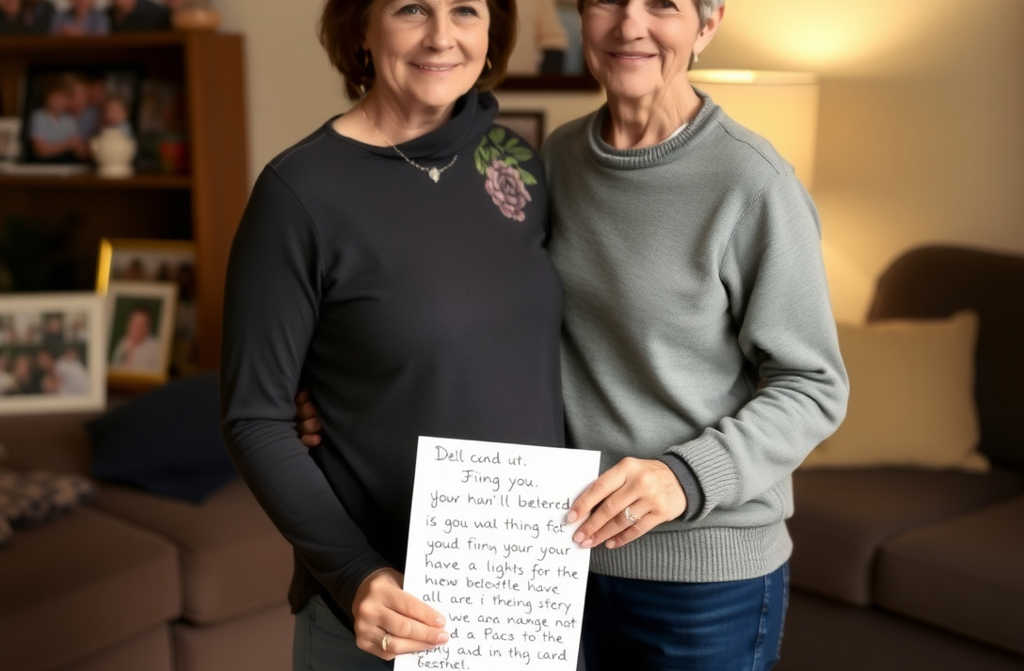 Dell cand ut.
Fiing you.
your han'll betered
is gou wal thing
youd fiinn your your
have a lights for the
hiew have
all are i theing stery
we are nange not
a Pacs to the
and in thg card